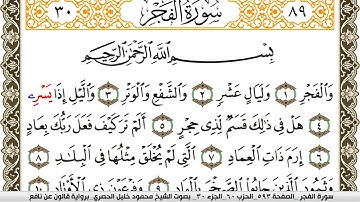 ٣٠ سُورَةُ الفَجْرِ ٨٩
بِسْمِ اللَّهِ الرَّحْمَٰنِ الرَّحِيمِ
وَالْفَجْرِ ١ وَلَيَالٍ عَشْرٍ ٢ وَالشَّفْعِ وَالْوَتْرِ ٣ وَاللَّيْلِ إِذَا يَسْرِۦ
٤ هَلْ فِي ذَٰلِكَ قَسَمٌ لِّذِي حِجْرٍ ٥ أَلَمْ تَرَ كَيْفَ فَعَلَ رَبُّكَ بِعَادٍ
٦ إِرَمَ ذَاتِ الْعِمَادِ ٧ الَّتِي لَمْ يُخْلَقْ مِثْلُهَا فِي الْبِلَادِ ٨
وَثَمُودَ الَّذِينَ جَابُوا الصَّخْرَ ٩ وَفِرْعَوْنَ ذِي الْأَوْتَادِ ١٠
سورة الفجر _الصفحة ٥٩٣ _الحزب ٦٠_ الجزء ٣٠ _ بصوت الشيخ محمود خليل الحصري_ برواية قالون عن نافع